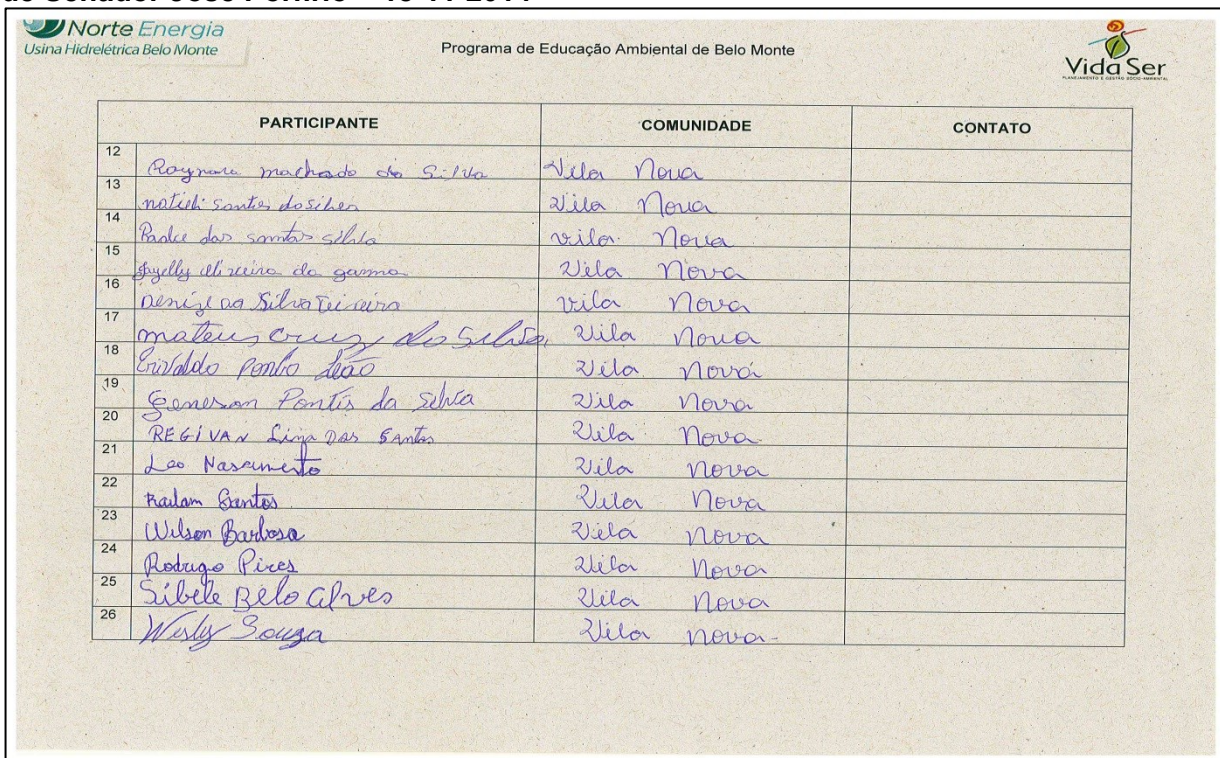 Norte Energia
Usina Hidrelétrica Belo Monte
Programa de Educação Ambiental de Belo Monte
Vida Ser
PLANEJAMENTO E GESTÃO SÓCIO-AMBIENTAL
PARTICIPANTE COMUNIDADE CONTATO
12 machado da Silva Vila Nova
13 santos da silva Vila Nova
14 dos santos silva vila Nova
15 da gama Vila Nova
16 Denize da Silva Teixeira vila Nova
17 mateus cruz da Silva Vila Nova
18 Erivaldo Leão Vila Nova
19 Pontis da Silva Vila Nova
20 REGIVAN Lima DAS SANTOS Vila Nova
21 Leo Nascimento Vila Nova
22 Railam Santos Vila Nova
23 Wilson Barbosa Vila Nova
24 Rodrigo Pires Vila Nova
25 Sibele Belo alves Vila Nova
26 Wesly Souza Vila nova